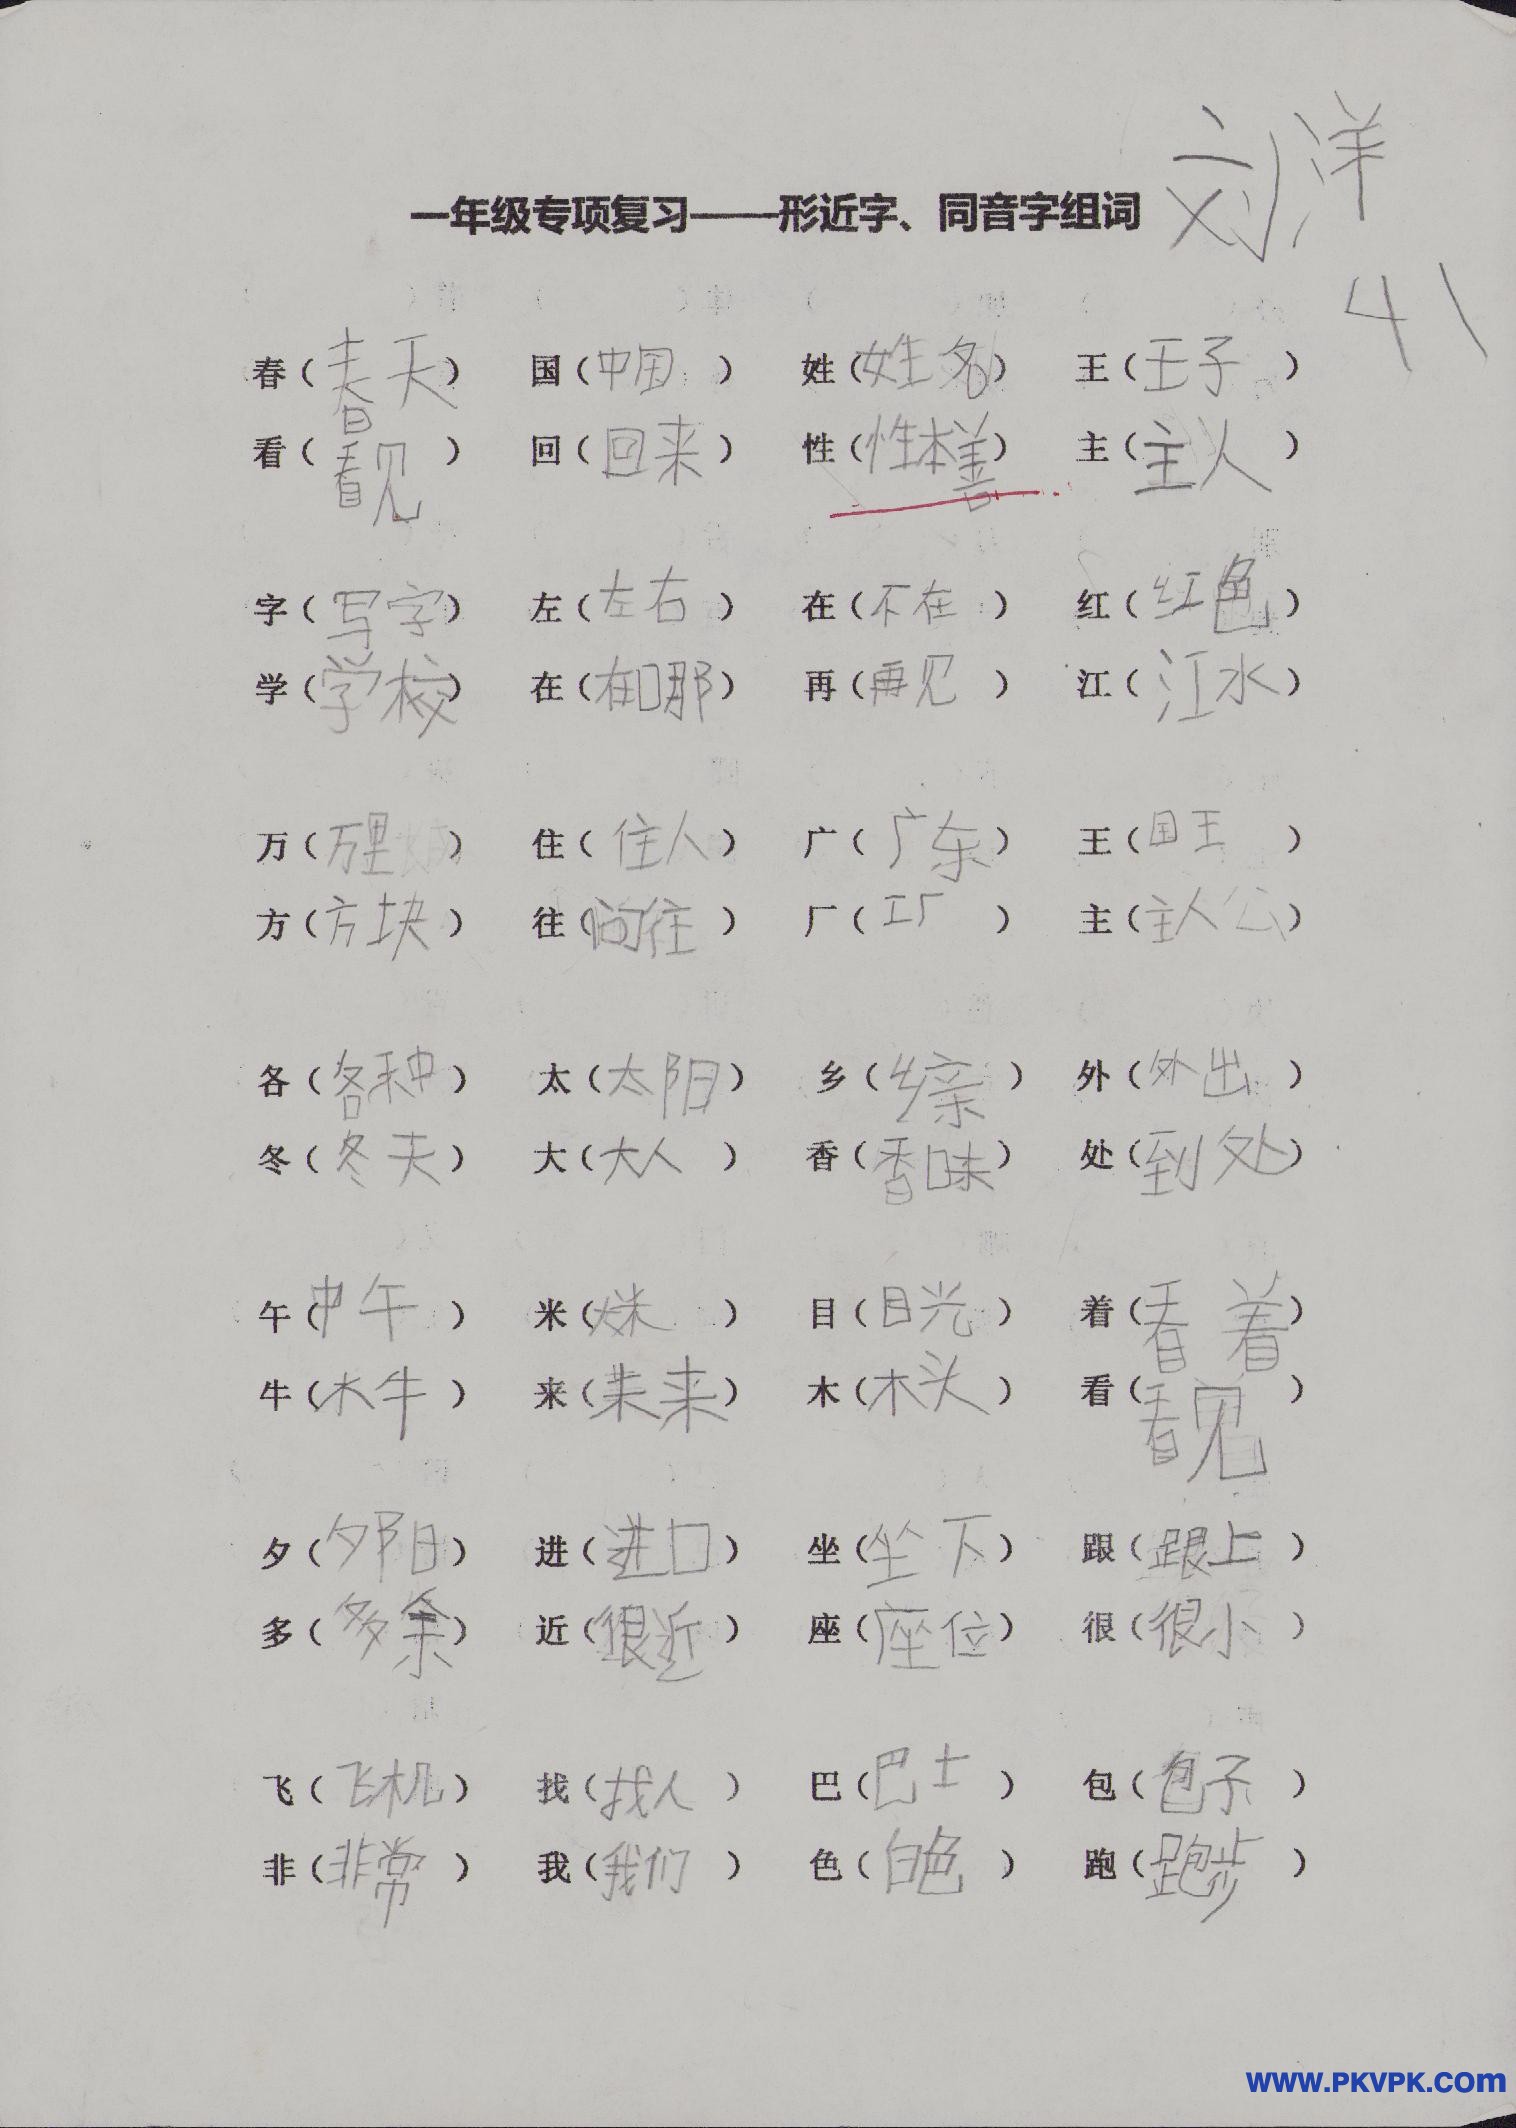 刘洋
一年级专项复习——形近字、同音字组词
41
春（春天） 国（中国） 姓（姓名） 王（王子）
看（看见） 回（回来） 性（性本善） 主（主人）
字（写字） 左（左右） 在（不在） 红（红色）
学（学校） 在（在那） 再（再见） 江（江水）
万（万里） 住（住人） 广（广东） 王（国王）
方（方块） 往（向往） 厂（工厂） 主（主人公）
各（各种） 太（太阳） 乡（乡亲） 外（外出）
冬（冬天） 大（大人） 香（香味） 处（到处）
午（中午） 米（大米） 目（目光） 着（看着）
牛（水牛） 来（未来） 木（木头） 看（看见）
夕（夕阳） 进（进口） 坐（坐下） 跟（跟上）
多（多余） 近（很近） 座（座位） 很（很小）
飞（飞机） 找（找人） 巴（巴士） 包（包子）
非（非常） 我（我们） 色（白色） 跑（跑步）
www.PKVPK.com